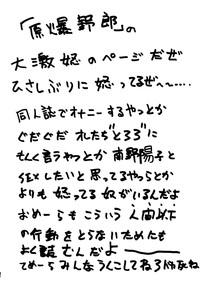 「原爆野郎」の
大激怒のページだぜ
ひさしぶりに怒ってるぜ〜〜……
同人誌でオナニーするやつとか
ぐだぐだオレたち"とろろ"に
もんく言うやつとか南野陽子と
したいと思ってるやつらとか
よりも怒ってる奴がいるんだよ
おめーらもこういう人間以下
の行動をとらないためにも
よく読むんだよ
てめーらみんなうんこしてねろ